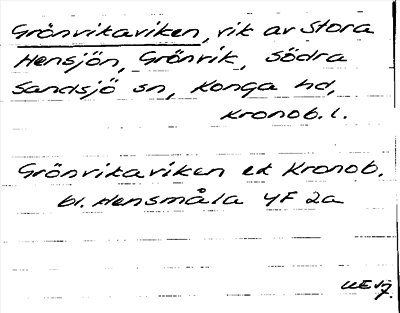 Grönvikaviken, vik av Stora
Hensjön, Grönvik, södra
Sandsjö sn, Konga hd,
Kronob. l.
Grönvikaviken ek Kronob.
bl. Hensmåla 4F 2a